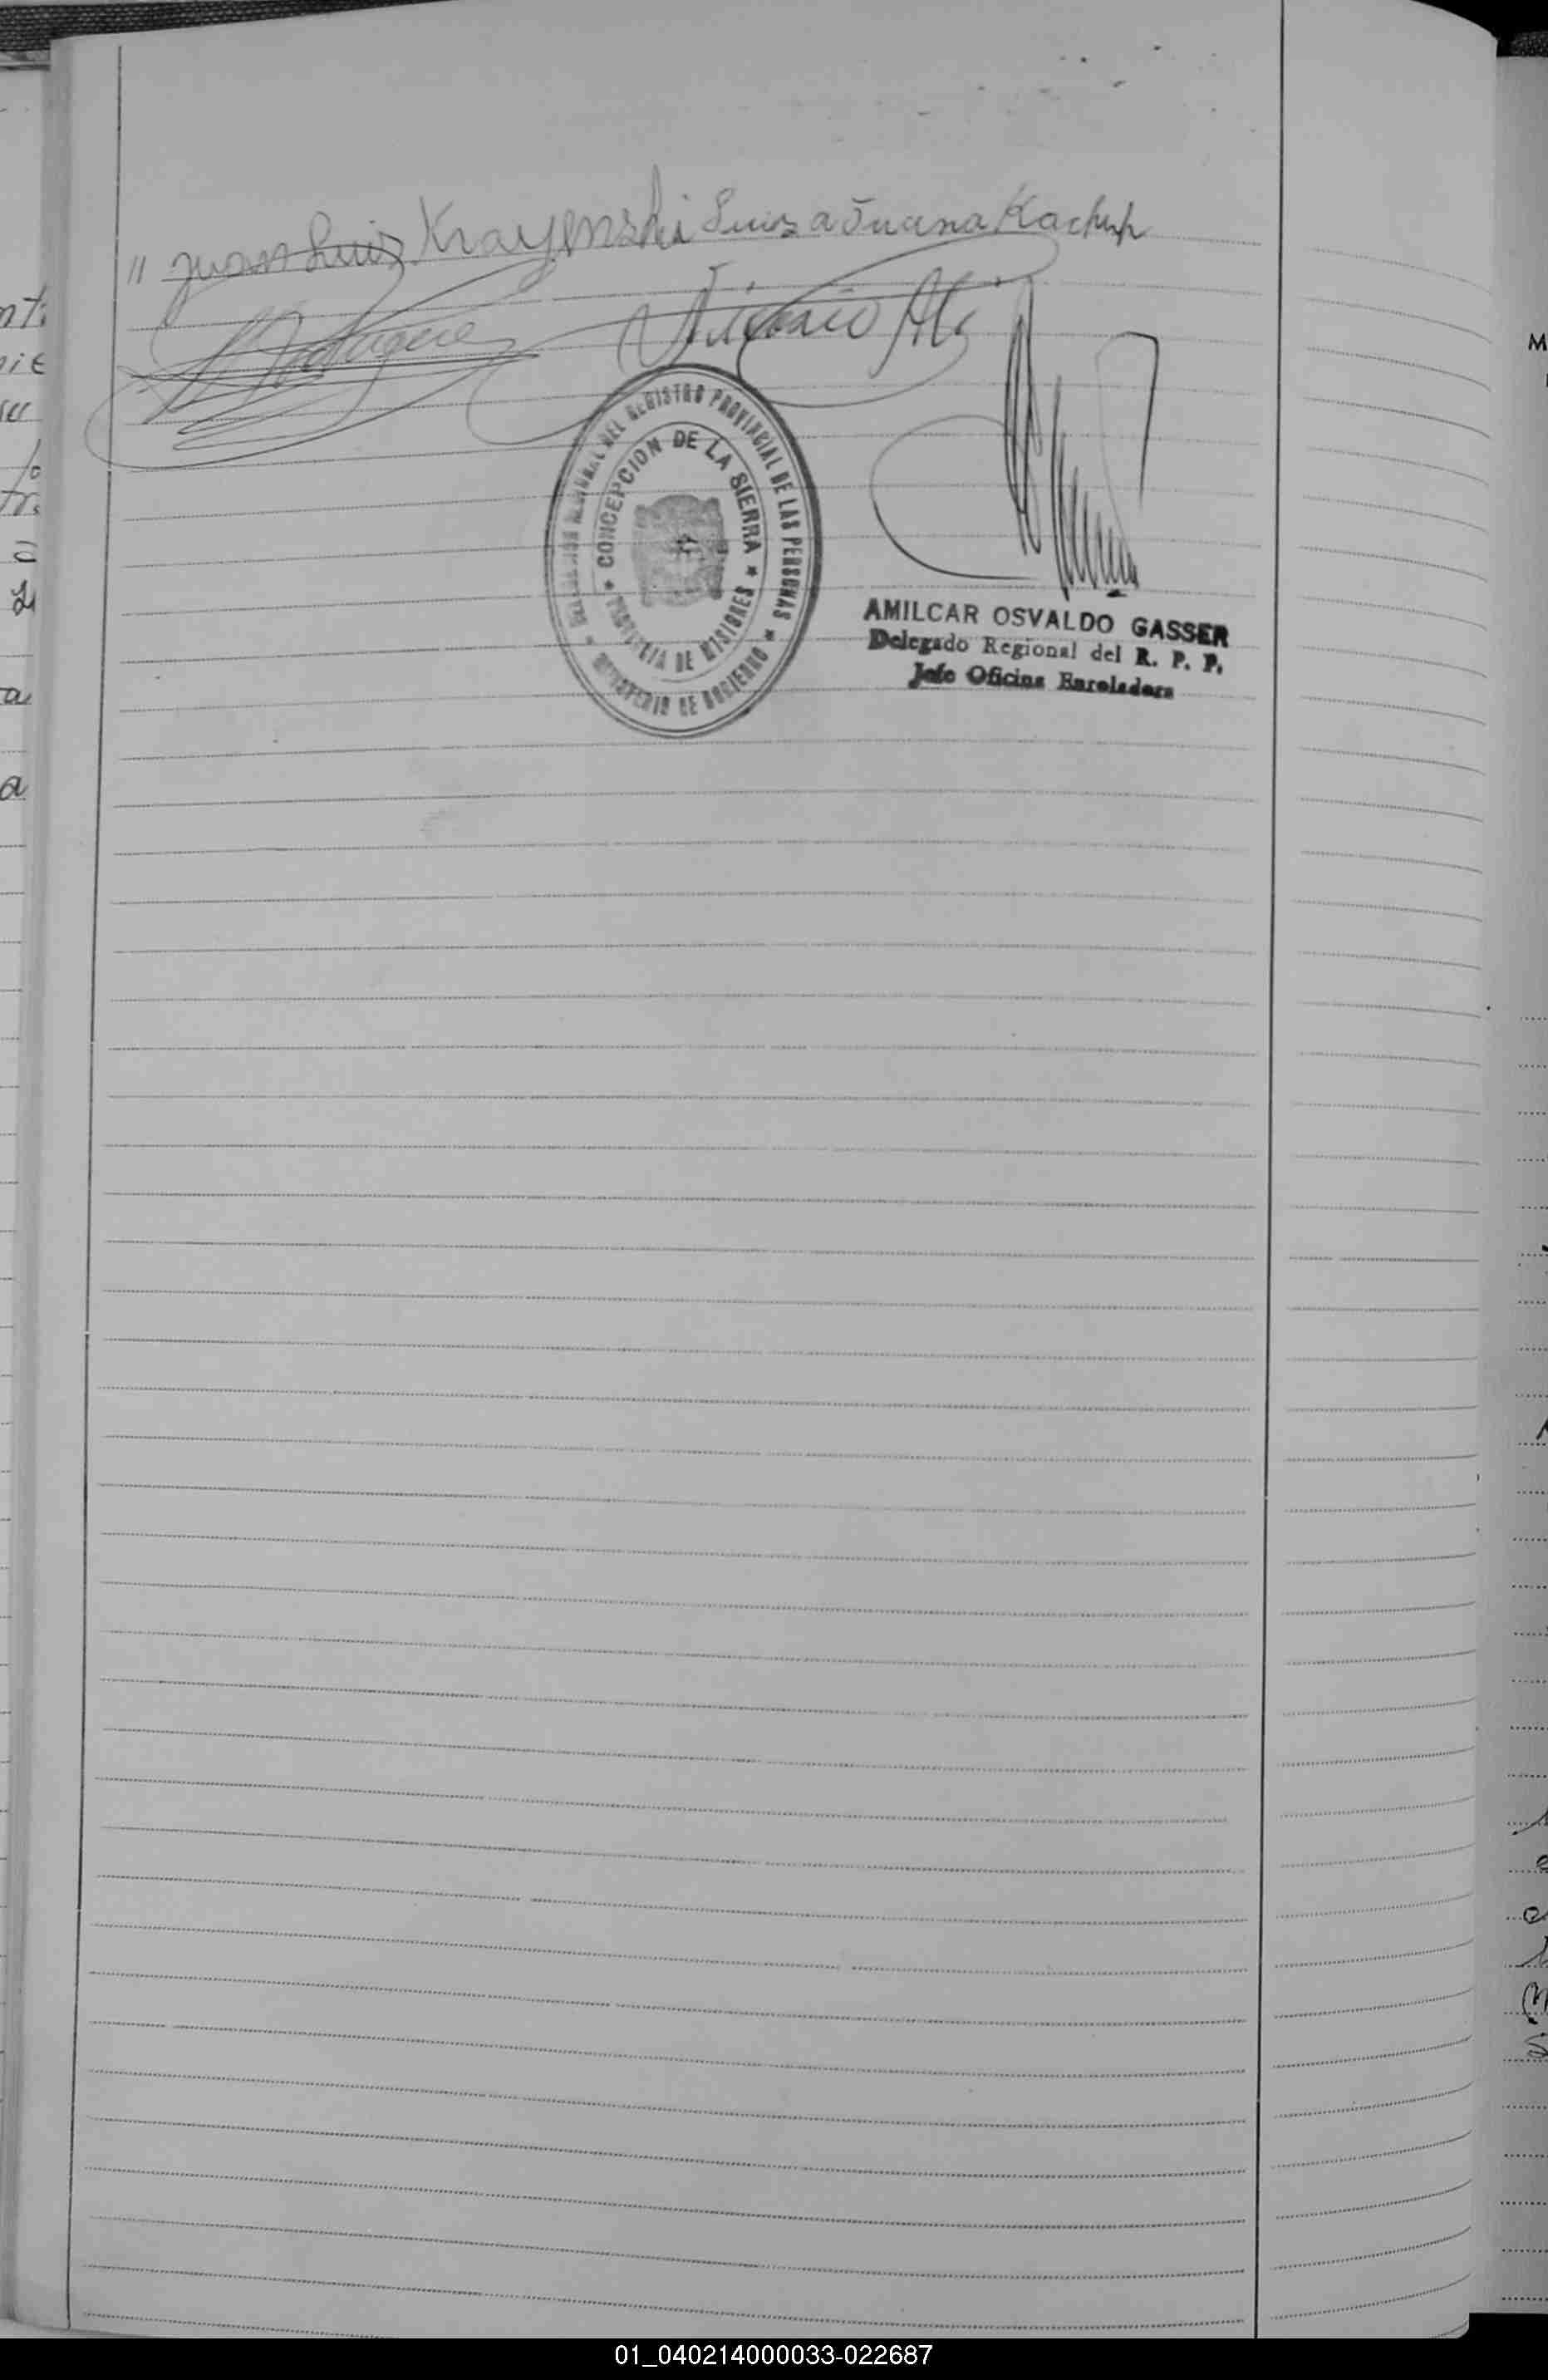 " Juan Luis Krayenski Luisa Juana Kachuk
DELEGACION REGIONAL DEL REGISTRO PROVINCIAL DE LAS PERSONAS
* MINISTERIO DE GOBIERNO *
* CONCEPCION DE LA SIERRA *
PROVINCIA DE MISIONES
AMILCAR OSVALDO GASSER
Delegado Regional del R. P. P.
Jefe Oficina Enroladora
01_040214000033-022687